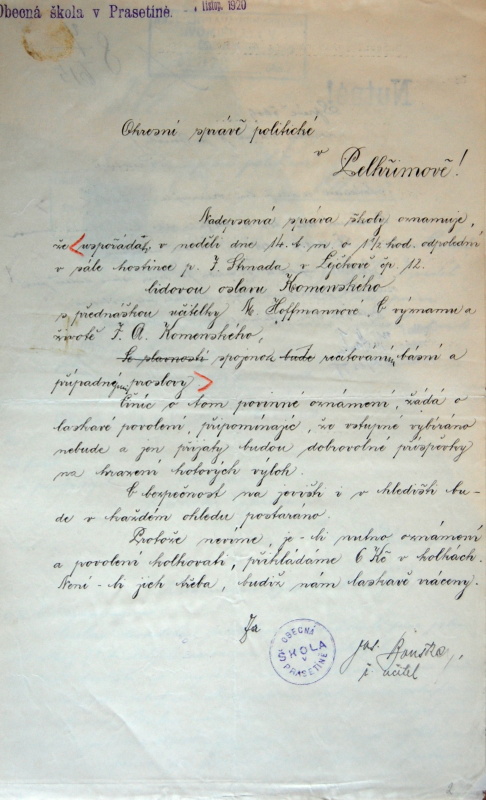 Obecná škola v Prasetíně. listop. 1920
Okresní správě politické
v
Pelhřimově!
Nadepsaná správa školy oznamuje,
že uspořádá, v neděli dne 14. t. m. o 1 1/2 hod. odpolední
v sále hostince p. J. Strnada v Lejčkově čp. 12.
lidovou oslavu Komenského
s přednáškou učitelky M. Hoffmannové O významu a
životě J. A. Komenského,
Se slavností spojenou bude recitování básní a
případně proslovy
Činíc o tom povinné oznámení, žádá o
laskavé povolení, připomínajíc, že vstupné vybíráno
nebude a jen přijaty budou dobrovolné příspěvky
na hrazení hotových výloh.
O bezpečnost na jevišti i v hledišti bu-
de v každém ohledu postaráno.
Protože nevíme, je-li nutno oznámení
a povolení kolkovati, přikládáme 6 Kč v kolkách.
Není-li jich třeba, budiž nám laskavě vráceny.
Za
OBECNÁ ŠKOLA V PRASETÍNĚ
Jos.
ř. učitel